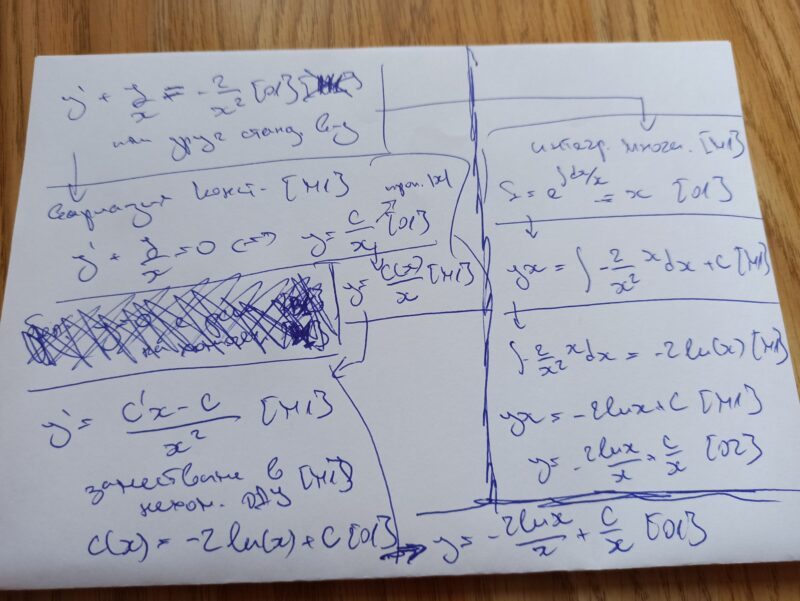 y' + y/x = -2/x² [O1]
или друг станд. в-д
вариация конст. [M1]
y' + y/x = 0 <=> y = C/x [O1]
проп. |x|
y = C(x)/x [M1]
y' = (C'x - C)/x² [M1]
заместване в [M1]
нехом. ОДУ
C(x) = -2 ln(x) + C [O1]
интегр. множ. [M1]
= e^∫dx/x = x [O1]
yx = ∫ -2/x² x dx + C [M1]
∫ -2/x² x dx = -2 ln(x) [M1]
yx = -2 ln x + C [M1]
y = -2 ln x/x + C/x [O2]
y = -2 ln x/x + C/x [O1]